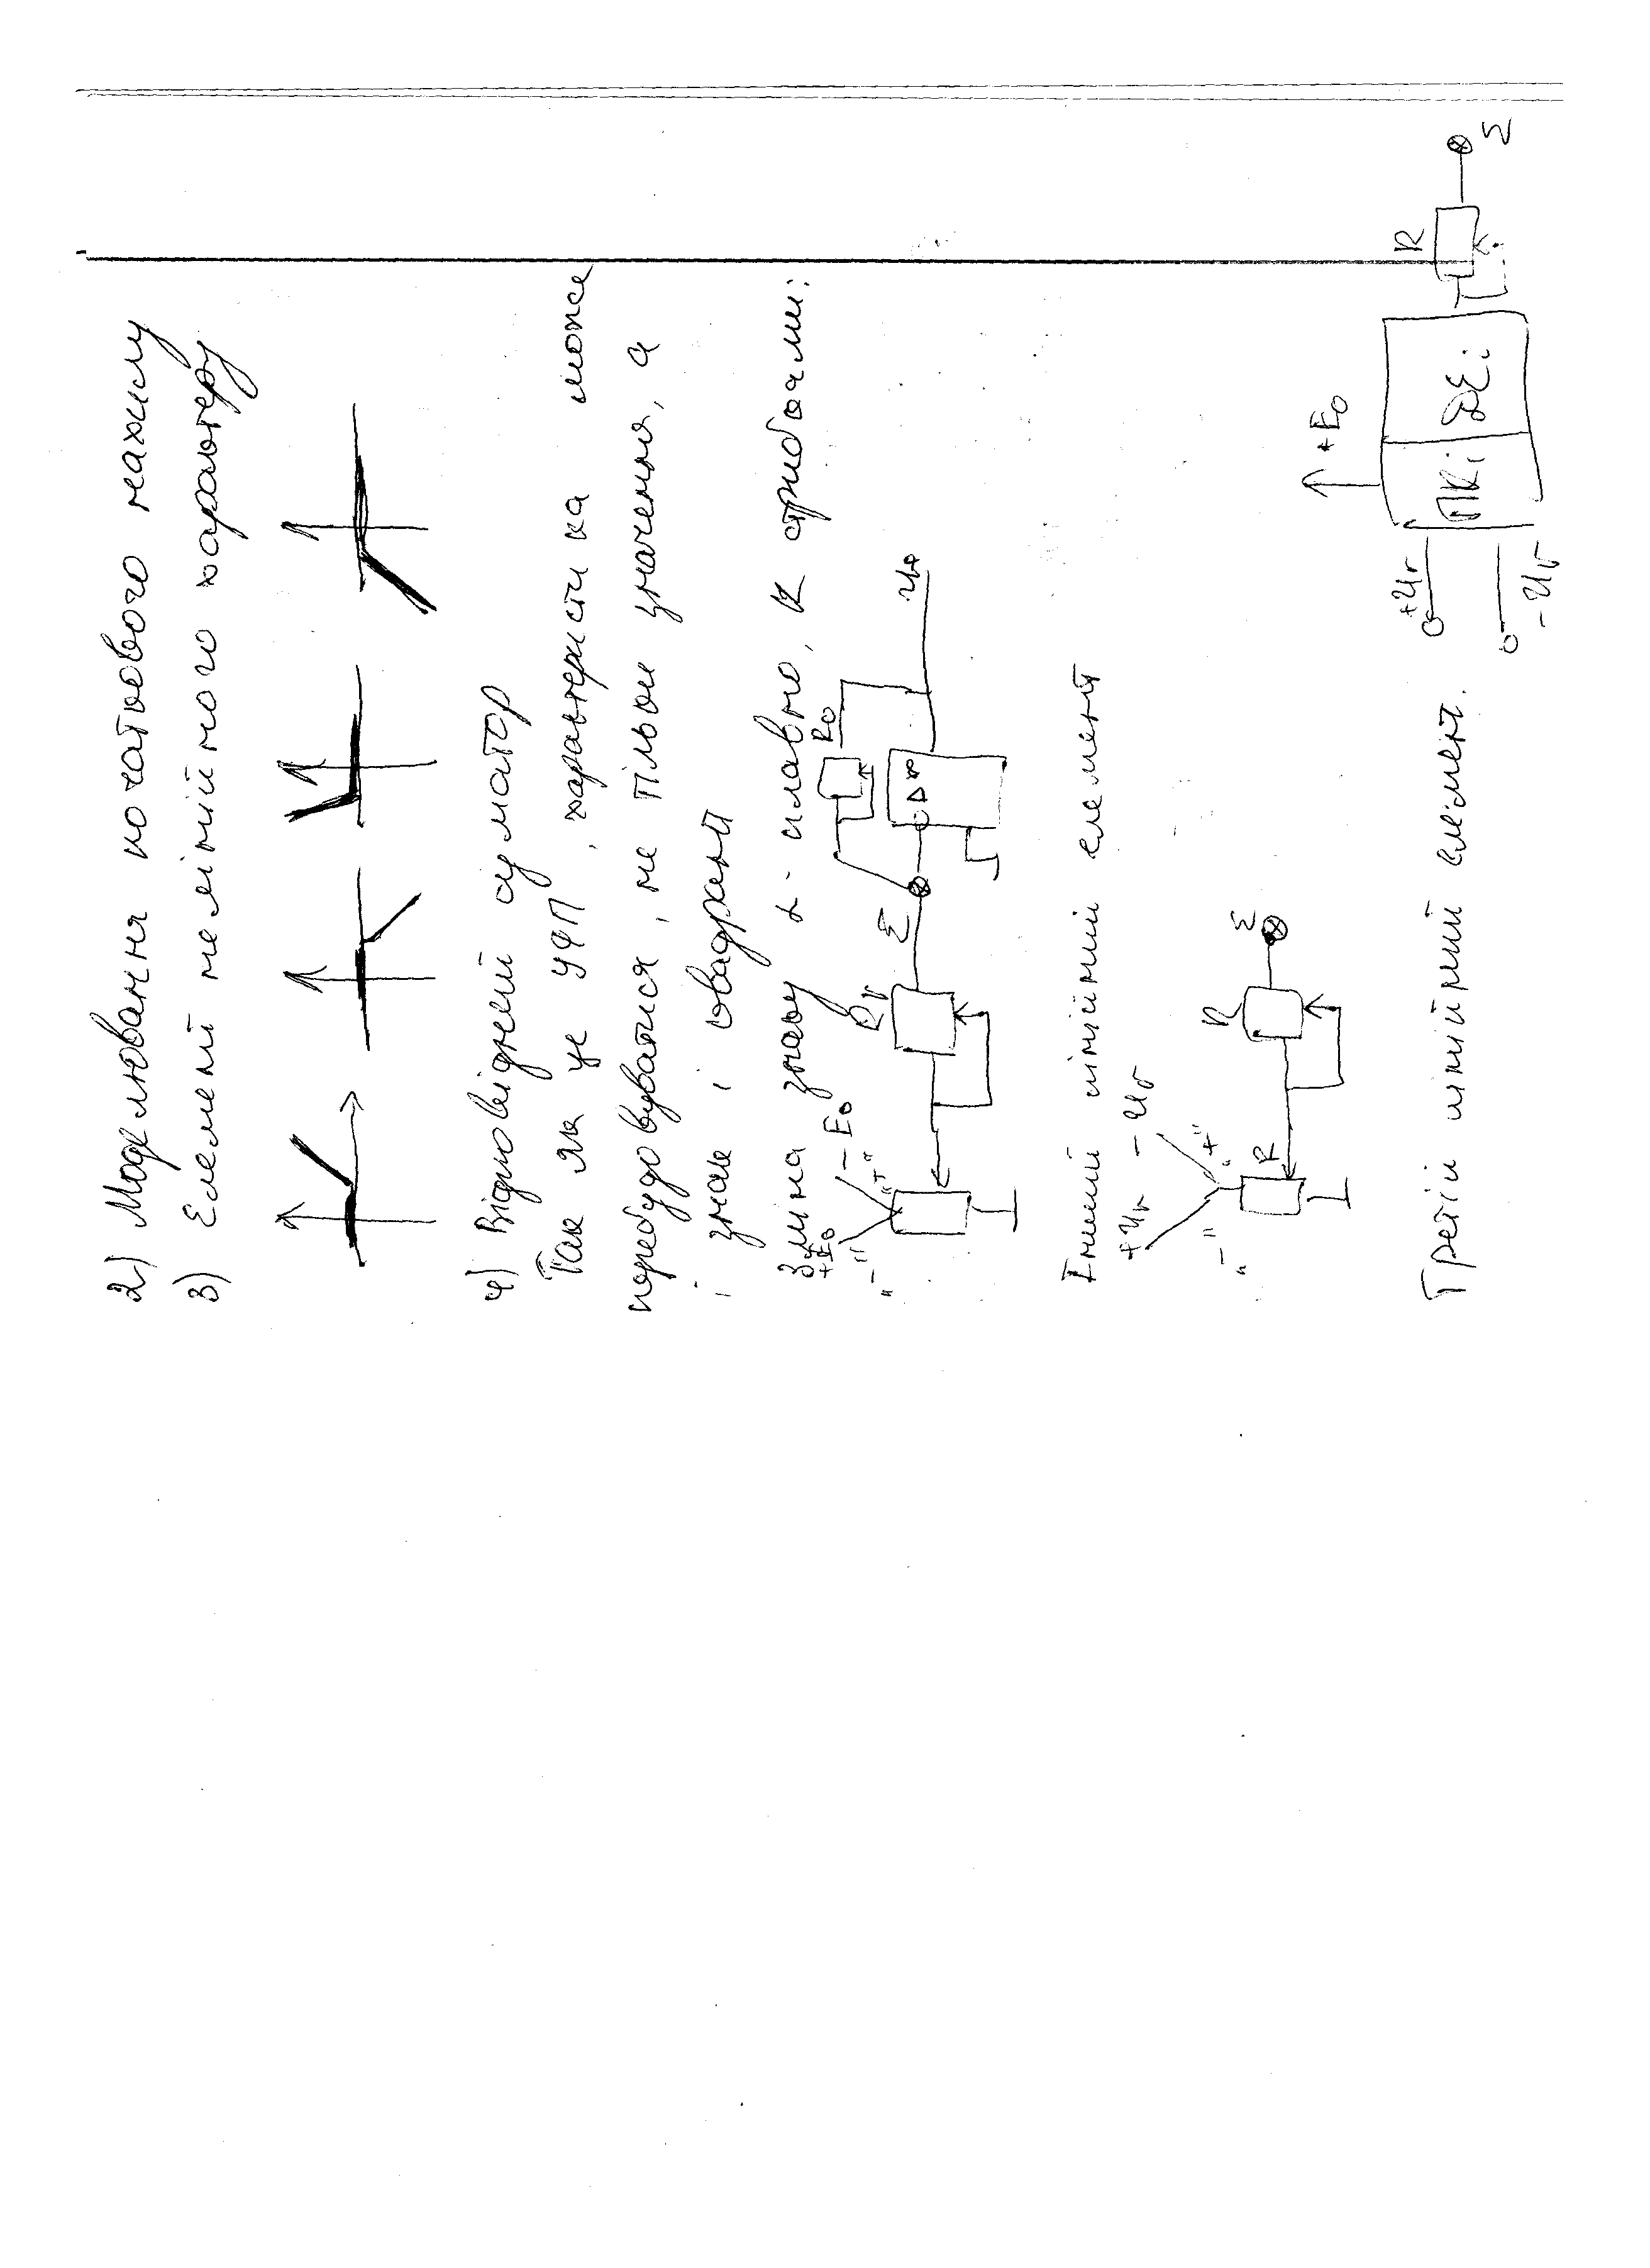 2) Моделювання початкового режиму
3) Елемент нелінійного характеру
4) Відповідний суматор
Так як це УФП, характеристика може
перебудовуватися, не тільки значення, а
і знак і квадрант
Зміна знаку α - плавно, R стрибками:
+E₀ - E₀
"-" "+"
Σ
R₀
Інший лінійний елемент
+Uᵣ - Uᵣ
"-" "+"
R
R
Σ
Третій лінійний елемент.
+E₀
+Uᵣ
-Uᵣ
ПКі ДЕі
R
Σ